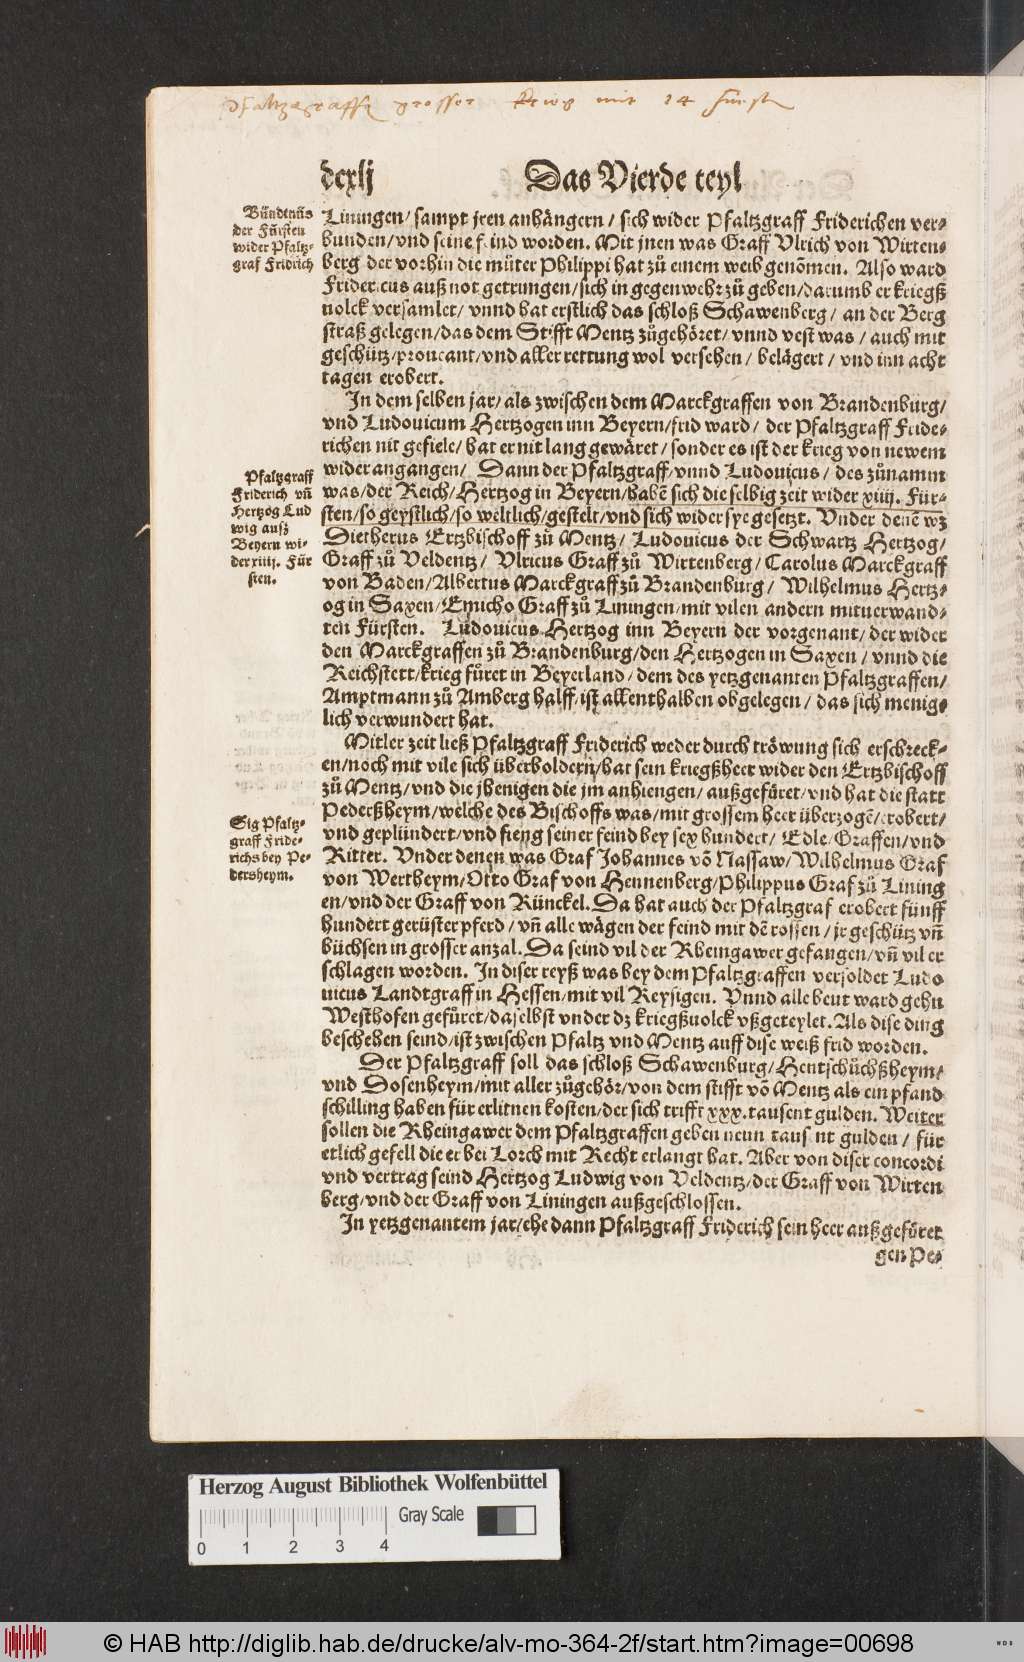 Pfaltzgraffe grosser krieg mit 14 fürsten
dcxlij
Das Vierde teyl
Bündtnüs
der Fürsten
wider Pfaltz-
graf Fridrich
Liningen/ sampt jren anhängern/ sich wider Pfaltzgraff Friderichen ver-
bunden/vnd seine feind worden. Mit jnen was Graff Vlrich von Wirten-
berg der vorhin die můter Philippi hat zů einem weib genõmen. Also ward
Fridericus auß not getrungen/sich in gegenwehr zů geben/darumb er kriegß
uolck versamlet/ vnnd hat erstlich das schloß Schawenberg/ an der Berg
straß gelegen/das dem Stifft Mentz zůgehöret/ vnnd vest was/ auch mit
geschütz/prouant/vnd aller rettung wol versehen/ belägert/ vnd inn acht
tagen erobert.
In dem selben jar/ als zwischen dem Marckgraffen von Brandenburg/
vnd Ludouicum Hertzogen inn Beyern/frid ward/ der Pfaltzgraff Fride-
richen nit gefiele/ hat er nit lang gewäret/ sonder es ist der krieg von newem
wider angangen/ Dann der Pfaltzgraff/vnnd Ludouicus/ des zůnamm
was/der Reich/Hertzog in Beyern/habẽ sich die selbig zeit wider xiiij. Für-
sten/so geystlich/so weltlich/gestelt/vnd sich wider sye gesetzt. Vnder denẽ wz
Pfaltzgraff
Friderich vñ
Hertzog Lud
wig auß
Beyern wi-
der xiiij. Für
sten.
Dietherus Ertzbischoff zů Mentz/ Ludouicus der Schwartz Hertzog/
Graff zů Veldentz/ Vlricus Graff zů Wirtenberg/ Carolus Marckgraff
von Baden/Albertus Marckgraff zů Brandenburg/ Wilhelmus Hertz-
og in Saxen/Emicho Graff zů Liningen/mit vilen andern mituerwand-
ten Fürsten. Ludouicus Hertzog inn Beyern der vorgenant/ der wider
den Marckgraffen zů Brandenburg/den Hertzogen in Saxen/ vnnd die
Reichstett/krieg fůret in Beyerland/ dem des yetzgenanten Pfaltzgraffen/
Amptmann zů Amberg halff/ist allenthalben obgelegen/ das sich menig-
lich verwundert hat.
Mitler zeit ließ Pfaltzgraff Friderich weder durch tröwung sich erschreck-
en/noch mit vile sich überboldern/hat sein kriegßheer wider den Ertzbischoff
zů Mentz/vnd die jhenigen die jm anhiengen/ außgefüret/vnd hat die statt
Pederßheym/welche des Bischoffs was/mit grossem heer überzogẽ/erobert/
vnd geplündert/vnd fieng seiner feind bey sex hundert/ Edle/Graffen/vnd
Sig Pfaltz-
graff Fride-
richs bey Pe-
dersheym.
Ritter. Vnder denen was Graf Johannes võ Nassaw/Wilhelmus Graf
von Wertheym/Otto Graf von Hennenberg/Philippus Graf zů Lining
en/vnd der Graff von Rünckel. Da hat auch der Pfaltzgraf erobert fünff
hundert gerüster pferd/ vñ alle wägen der feind mit dẽ rossen/ jr geschütz vñ
büchsen in grosser anzal. Da seind vil der Rheingawer gefangen/vñ vil er
schlagen worden. In diser reyß was bey dem Pfaltzgraffen versoldet Ludo
uicus Landtgraff in Hessen/mit vil Reysigen. Vnnd alle beut ward gehn
Westhofen gefůret/daselbst vnder dz kriegßuolck vßgeteylet. Als dise ding
beschehen seind/ist zwischen Pfaltz vnd Mentz auff dise weiß frid worden.
Der Pfaltzgraff soll das schloß Schawenburg/Hentschüchßheym/
vnd Dosenheym/mit aller zůgehör/von dem stifft võ Mentz als ein pfand
schilling haben für erlitnen kosten/der sich trifft xxx. tausent gulden. Weiter
sollen die Rheingawer dem Pfaltzgraffen geben neun tausent gulden/ für
etlich gefell die er bei Lorch mit Recht erlangt hat. Aber von diser concordi
vnd vertrag seind Hertzog Ludwig von Veldentz/der Graff von Wirten
berg/vnd der Graff von Liningen außgeschlossen.
In yetzgenantem jar/ehe dann Pfaltzgraff Friderich sein heer außgefůret
gen Pe-
Herzog August Bibliothek Wolfenbüttel
Gray Scale
0 1 2 3 4
© HAB http://diglib.hab.de/drucke/alv-mo-364-2f/start.htm?image=00698